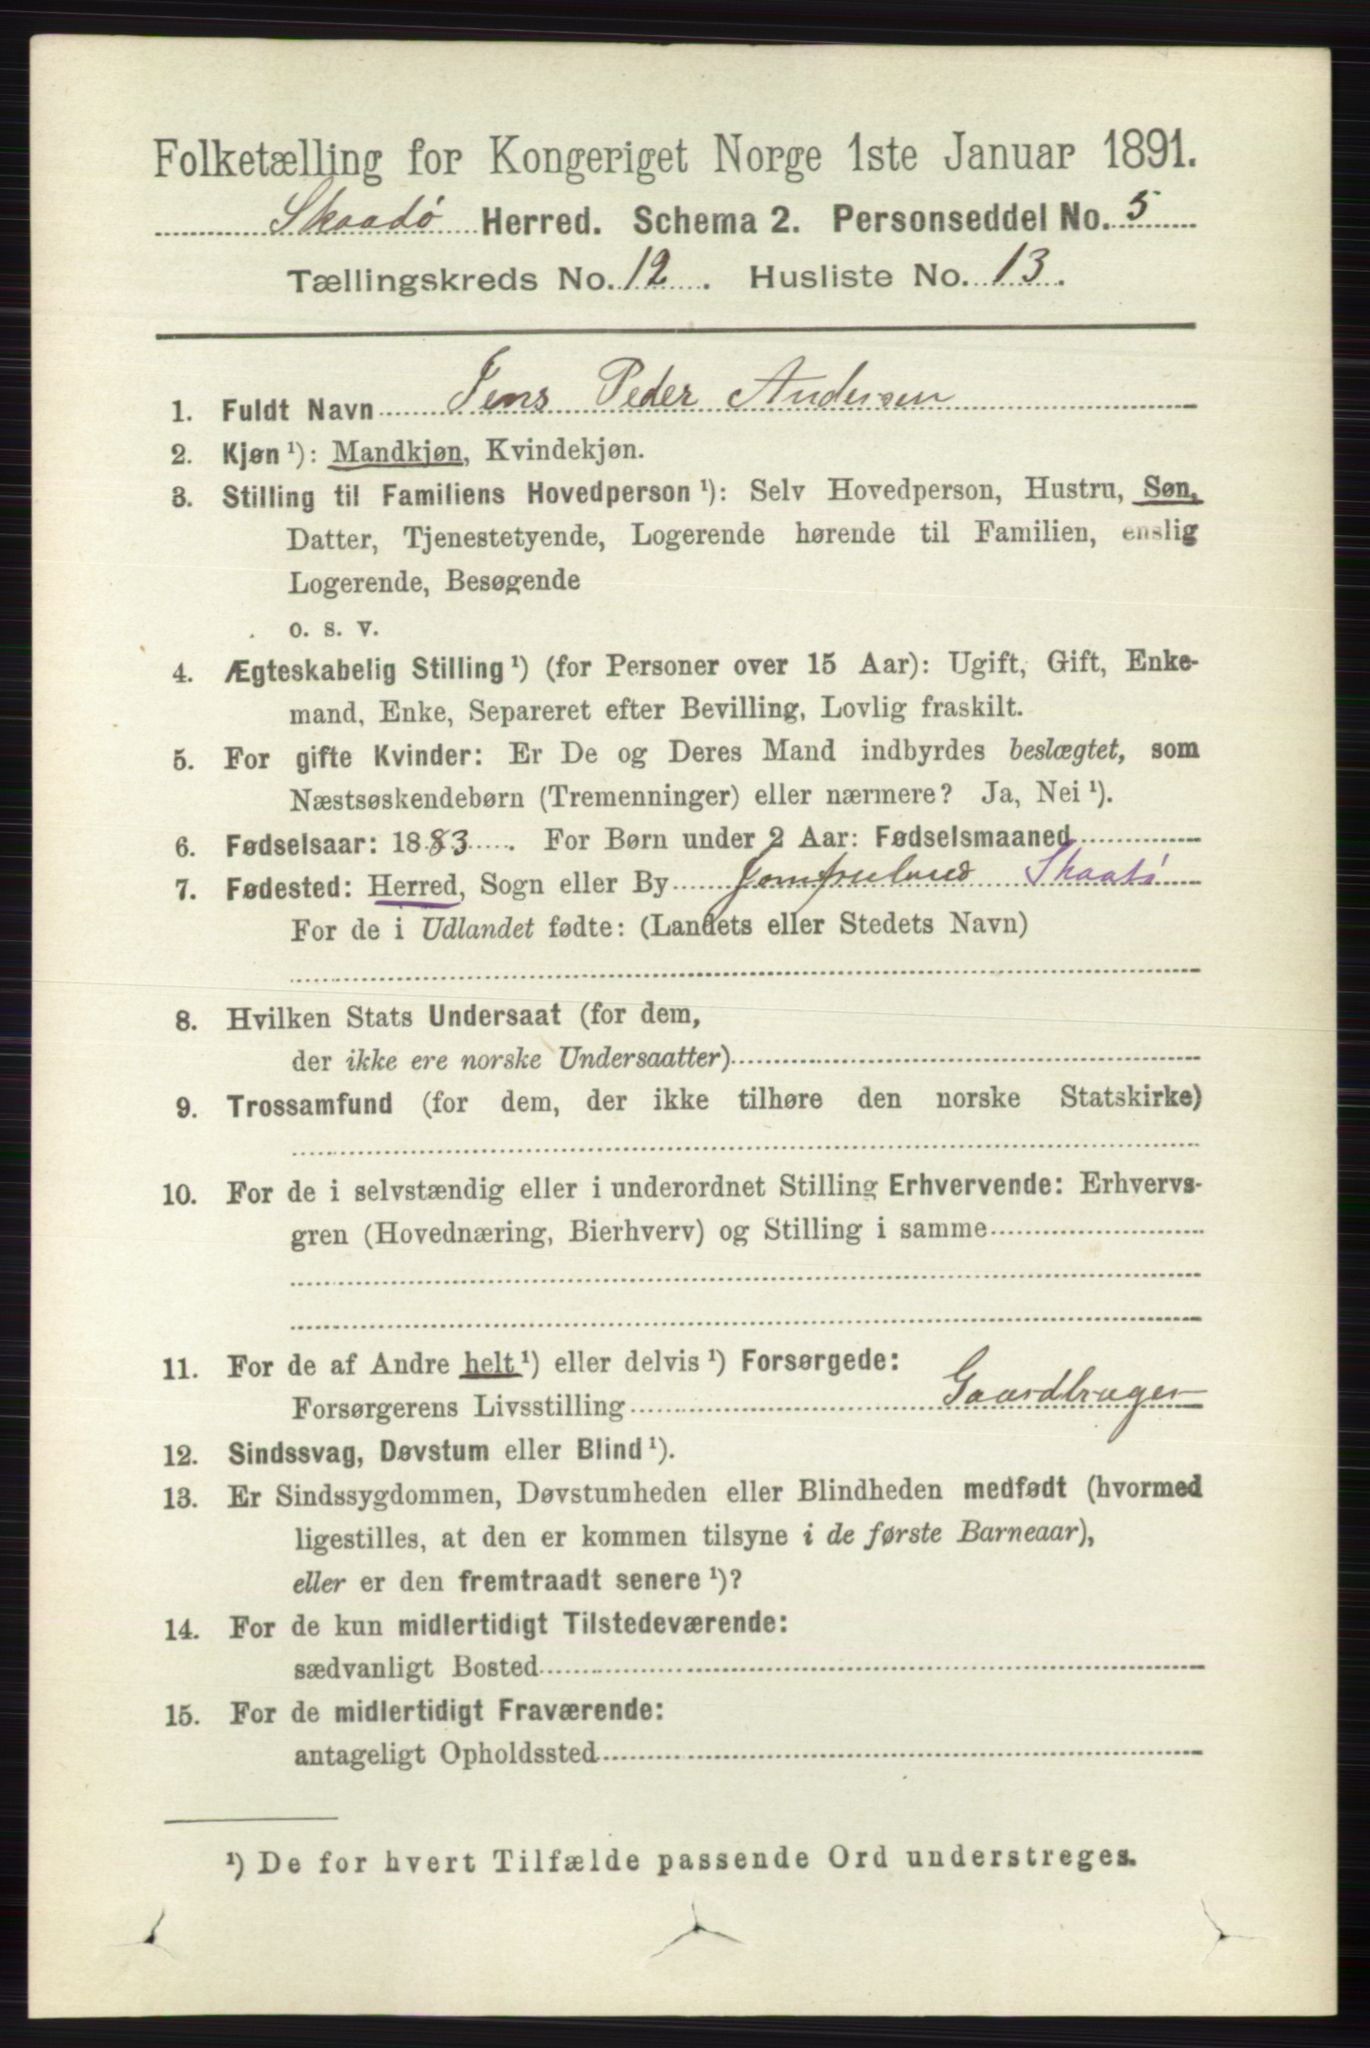 Folketælling for Kongeriget Norge 1ste Januar 1891.
Skaadø Herred. Schema 2. Personseddel No. 5
Tællingskreds No. 12. Husliste No. 13.
1. Fuldt Navn Jens Peder Andersen
2. Kjøn ¹): Mandkjøn, Kvindekjøn.
3. Stilling til Familiens Hovedperson ¹): Selv Hovedperson, Hustru, Søn,
Datter, Tjenestetyende, Logerende hørende til Familien, enslig
Logerende, Besøgende
o. s. v.
4. Ægteskabelig Stilling ¹) (for Personer over 15 Aar): Ugift, Gift, Enke-
mand, Enke, Separeret efter Bevilling, Lovlig fraskilt.
5. For gifte Kvinder: Er De og Deres Mand indbyrdes beslægtet, som
Næstsøskendebørn (Tremenninger) eller nærmere? Ja, Nei ¹).
6. Fødselsaar: 1883. For Børn under 2 Aar: Fødselsmaaned
7. Fødested: Herred, Sogn eller By Jomfruland Skaatø
For de i Udlandet fødte: (Landets eller Stedets Navn)
8. Hvilken Stats Undersaat (for dem,
der ikke ere norske Undersaatter)
9. Trossamfund (for dem, der ikke tilhøre den norske Statskirke)
10. For de i selvstændig eller i underordnet Stilling Erhvervende: Erhvervs-
gren (Hovednæring, Bierhverv) og Stilling i samme
11. For de af Andre helt ¹) eller delvis ¹) Forsørgede:
Forsørgerens Livsstilling Gaardbruger
12. Sindssvag, Døvstum eller Blind ¹).
13. Er Sindssygdommen, Døvstumheden eller Blindheden medfødt (hvormed
ligestilles, at den er kommen tilsyne i de første Barneaar),
eller er den fremtraadt senere ¹)?
14. For de kun midlertidigt Tilstedeværende:
sædvanligt Bosted
15. For de midlertidigt Fraværende:
antageligt Opholdssted
¹) De for hvert Tilfælde passende Ord understreges.